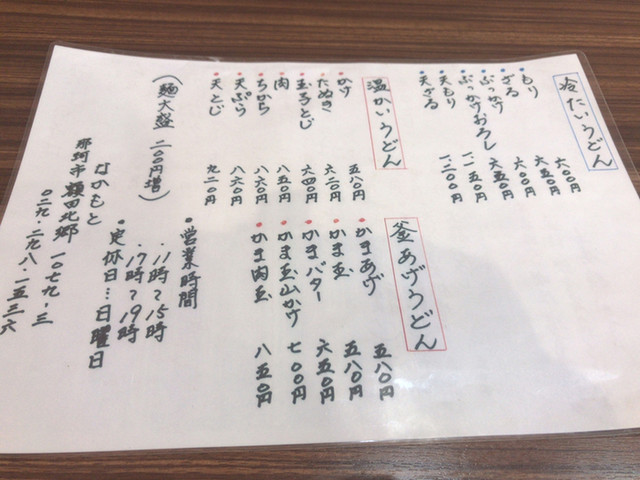 冷たいうどん
・もり 六〇〇円
・ざる 六五〇円
・ぶっかけ 六〇〇円
・ぶっかけおろし 六五〇円
・天もり 一、一五〇円
・天ざる 一、二〇〇円
温かいうどん
・かけ 五八〇円
・たぬき 六二〇円
・玉子とじ 六四〇円
・肉 八五〇円
・ちから 八六〇円
・天ぷら 八六〇円
・天とじ 九二〇円
(麺大盛 二〇〇円増)
釜あげうどん
・かまあげ 五八〇円
・かま玉 五八〇円
・かまバター 六五〇円
・かま玉山かけ 七〇〇円
・かま肉玉 八五〇円
・営業時間
・11時~15時
・17時~19時
・定休日…日曜日
なかもと
那珂市額田北郷一〇七九-三
〇二九-二九八-一五三六